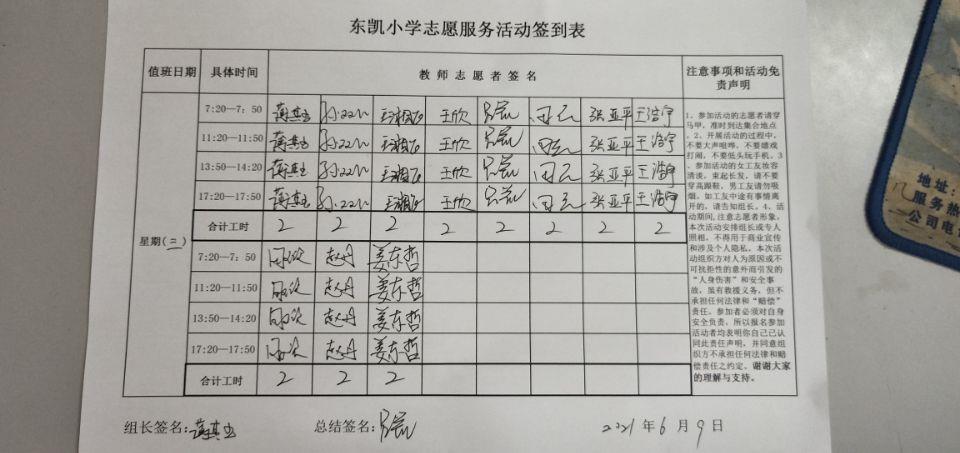 东凯小学志愿服务活动签到表
值班日期 具体时间 教师志愿者签名 注意事项和活动免责声明
星期(三)
7:20—7:50 王欣 田云 张亚平 王浩宇
11:20—11:50 王欣 田云 张亚平 王浩宇
13:50—14:20 王欣 田云 张亚平 王浩宇
17:20—17:50 王欣 田云 张亚平 王浩宇
合计工时 2 2 2 2 2 2 2 2
7:20—7:50 赵丹 姜东哲
11:20—11:50 赵丹 姜东哲
13:50—14:20 赵丹 姜东哲
17:20—17:50 赵丹 姜东哲
合计工时 2 2 2
1、参加活动的志愿者请穿
马甲,准时到达集合地点
。2、开展活动的过程中,
不要大声喧哗,不要嬉戏
打闹,不要低头玩手机。3
、参加活动的女工友妆容
清淡,束起长发,请不要
穿高跟鞋,男工友请勿吸
烟。如工友中途有事情离
开的,请告知组长。4、活
动期间,注意志愿者形象。
本次活动安排组长或专人
照相,不得用于商业宣传
和涉及个人隐私。本次活
动组织方对人为原因或不
可抗拒性的意外而引发的
“人身伤害”和安全事
故,虽有救援义务,但不
承担任何法律和“赔偿”
责任。参加者必须对自身
安全负责,所以报名参加
活动者均表明你自己已认
同此责任声明,并同意组
织方不承担任何法律和赔
偿责任之约定。谢谢大家
的理解与支持。
组长签名: 总结签名: 2021年6月9日
地址:
服务热
公司电